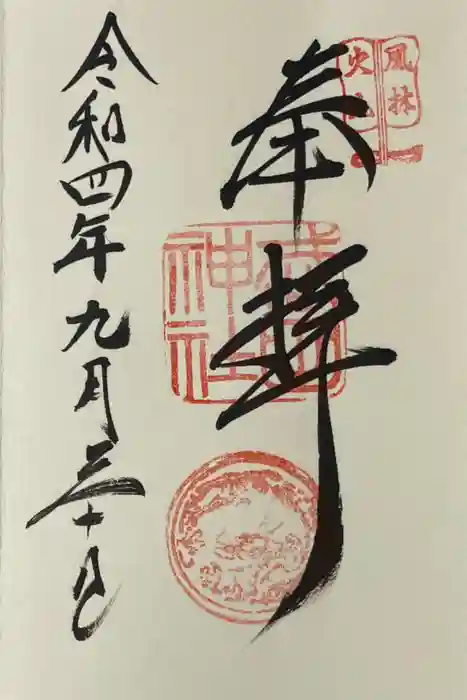 風林
火山
奉拝
武田神社
令和四年九月三十日